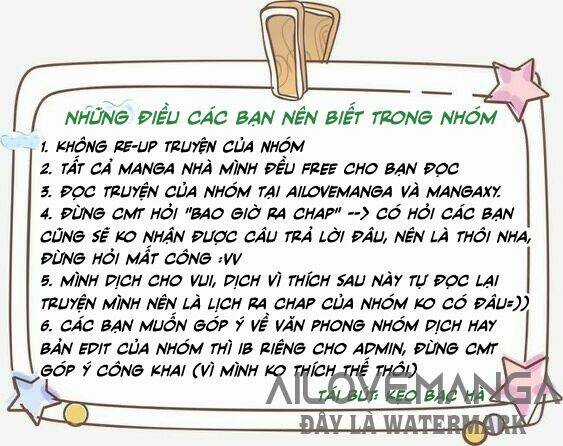 NHỮNG ĐIỀU CÁC BẠN NÊN BIẾT TRONG NHÓM
1. KHÔNG RE-UP TRUYỆN CỦA NHÓM
2. TẤT CẢ MANGA NHÀ MÌNH ĐỀU FREE CHO BẠN ĐỌC
3. ĐỌC TRUYỆN CỦA NHÓM TẠI AILOVEMANGA VÀ MANGAXY.
4. ĐỪNG CMT HỎI "BAO GIỜ RA CHAP" --> CÓ HỎI CÁC BẠN
CŨNG SẼ KO NHẬN ĐƯỢC CÂU TRẢ LỜI ĐÂU, NÊN LÀ THÔI NHA,
ĐỪNG HỎI MẤT CÔNG :VV
5. MÌNH DỊCH CHO VUI, DỊCH VÌ THÍCH SAU NÀY TỰ ĐỌC LẠI
TRUYỆN MÌNH NÊN LÀ LỊCH RA CHAP CỦA NHÓM KO CÓ ĐÂU=))
6. CÁC BẠN MUỐN GÓP Ý VỀ VĂN PHONG NHÓM DỊCH HAY
BẢN EDIT CỦA NHÓM THÌ IB RIÊNG CHO ADMIN, ĐỪNG CMT
GÓP Ý CÔNG KHAI (VÌ MÌNH KO THÍCH THẾ THÔI)
AILOVEMANGA
KẸO BẠC HÀ
ĐÂY LÀ WATERMARK